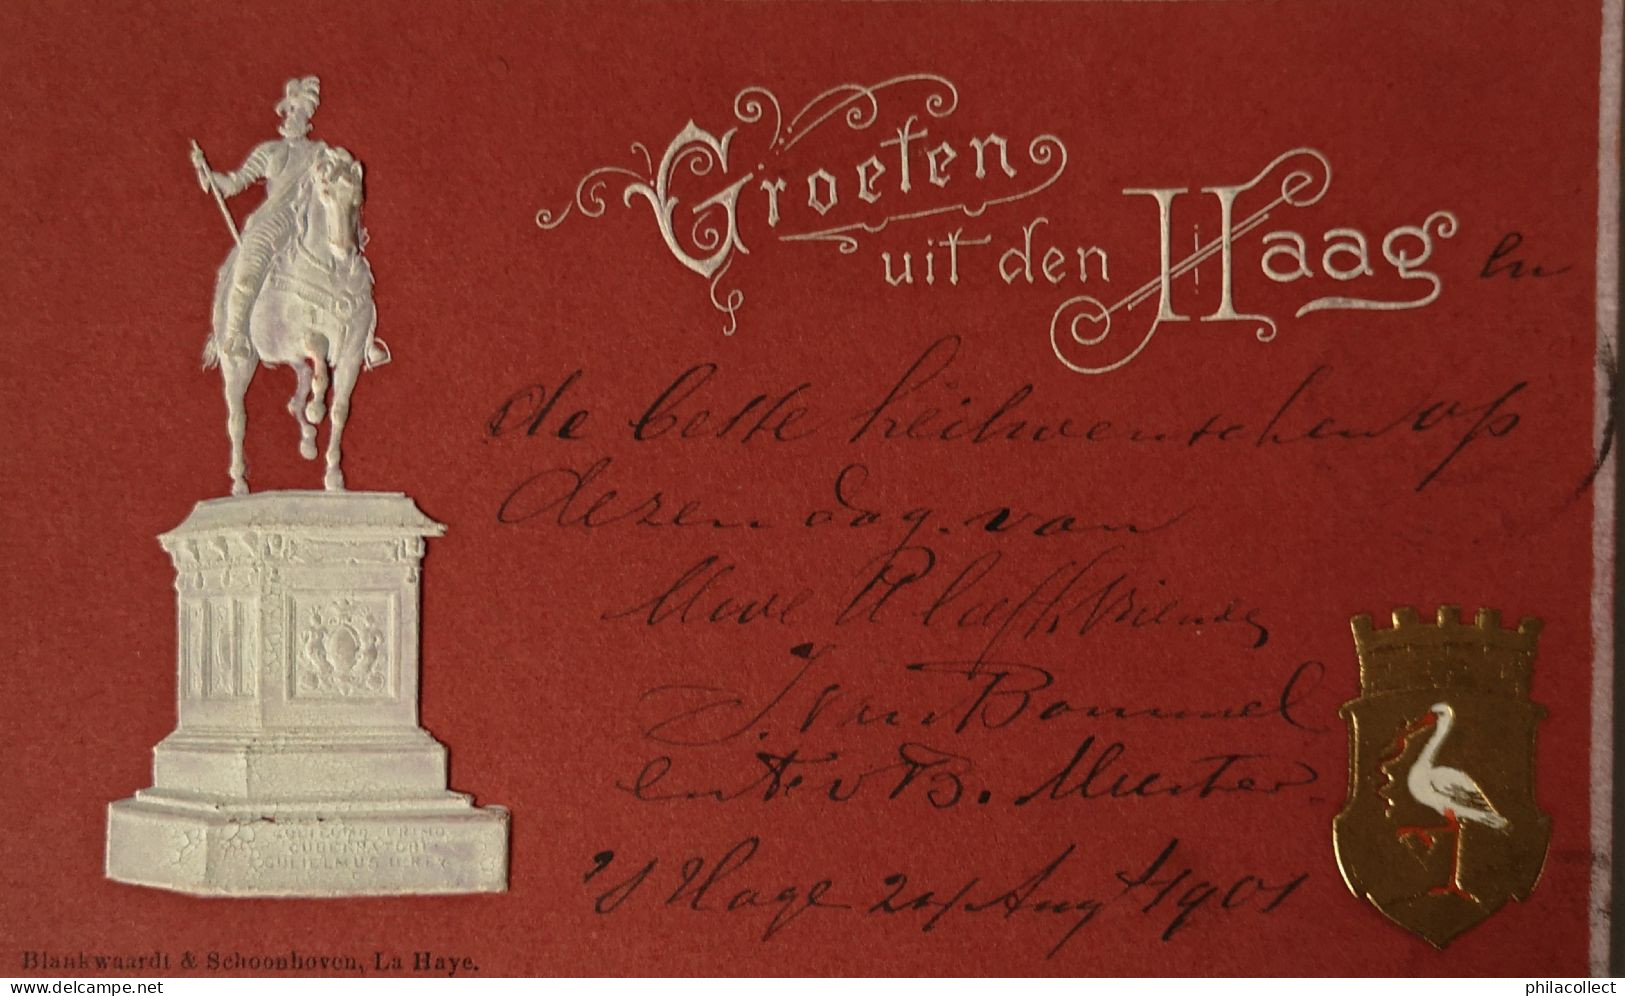 Groeten
uit den Haag en
de beste heilwenschen op
dezen dag. van
Uwe Vrienden
J. van Bommel
en v B. Munter.
's Hage 24 Aug 1901
GUILELMO PRIMO
GUBERNATORI
GULIELMUS II REX
Blankwaardt & Schoonhoven, La Haye.
© delcampe.net
philacollect